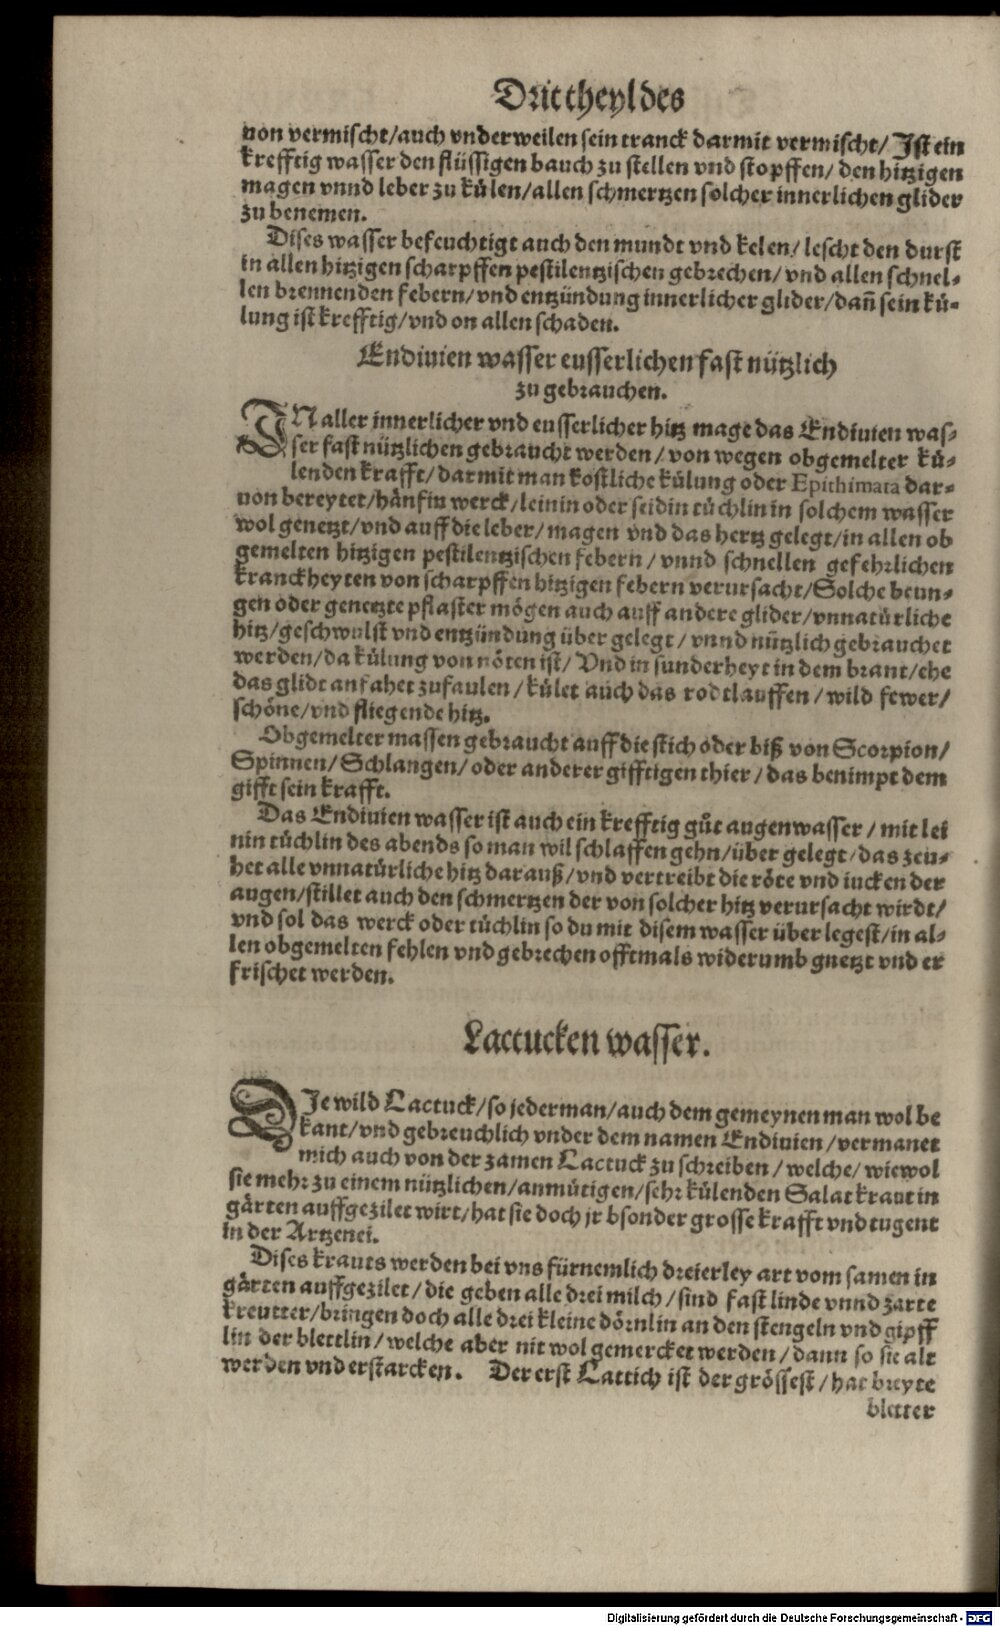 Drit theyl des
von vermischt/auch vnderweilen sein tranck darmit vermischt/ Jst ein
krefftig wasser den flüssigen bauch zu stellen vnd stopffen/ den hitzigen
magen vnnd leber zu kůlen/allen schmertzen solcher innerlichen glider
zu benemen.
Dises wasser befeuchtigt auch den mundt vnd kelen/ lescht den durst
in allen hitzigen scharpffen pestilentzischen gebrechen/ vnd allen schnel-
len brennenden febern/vnd entzündung innerlicher glider/dañ sein kü-
lung ist krefftig/vnd on allen schaden.
Endiuien wasser eusserlichen fast nützlich
zu gebrauchen.
IN aller innerlicher vnd eusserlicher hitz mage das Endiuien was-
ser fast nützlichen gebraucht werden/ von wegen obgemelter kü-
lenden krafft/darmit man kostliche külung oder Epithimata dar-
von bereytet/hänfin werck/leinin oder seidin tüchlin in solchem wasser
wol genetzt/vnd auff die leber/magen vnd das hertz gelegt/in allen ob
gemelten hitzigen pestilentzischen febern/ vnnd schnellen gefehrlichen
kranckheyten von scharpffen hitzigen febern verursacht/Solche beun-
gen oder genetzte pflaster mögen auch auff andere glider/vnnatürliche
hitz/geschwulst vnd entzündung über gelegt/ vnnd nützlich gebrauchet
werden/da külung von nöten ist/ Vnd in sunderheyt in dem brant/ehe
das glidt anfahet zufaulen/ kület auch das rodtlauffen/ wild fewer/
schöne/vnd fliegende hitz.
Obgemelter massen gebraucht auff die stich oder biß von Scorpion/
Spinnen/ Schlangen/ oder anderer gifftigen thier/ das benimpt dem
gifft sein krafft.
Das Endiuien wasser ist auch ein krefftig gůt augenwasser/ mit lei
nin tüchlin des abends so man wil schlaffen gehn/über gelegt/das zeu-
het alle vnnatürliche hitz darauß/vnd vertreibt die röte vnd iucken der
augen/stillet auch den schmertzen der von solcher hitz verursacht wirdt/
vnd sol das werck oder tüchlin so du mit disem wasser über legest/in al-
len obgemelten fehlen vnd gebrechen offtmals widerumb gnetzt vnd er
frischet werden.
Lactucken wasser.
DIe wild Lactuck/so jederman/auch dem gemeynen man wol be
kant/vnd gebreuchlich vnder dem namen Endiuien/vermanet
mich auch von der zamen Lactuck zu schreiben/ welche/ wiewol
sie mehr zu einem nützlichen/anmütigen/sehr külenden Salat kraut in
gärten auffgezilet wirt/hat sie doch jr bsonder grosse krafft vnd tugent
in der Artzenei.
Dises krauts werden bei vns fürnemlich dreierley art vom samen in
gärten auffgezilet/ die geben alle drei milch/sind fast linde vnnd zarte
kreutter/bringen doch alle drei kleine dörnlin an den stengeln vnd gipff
lin der blettlin/ welche aber nit wol gemercket werden/dann so sie alt
werden vnd erstarcken. Der erst Lattich ist der grössest/ hat breyte
bletter
Digitalisierung gefördert durch die Deutsche Forschungsgemeinschaft - DFG